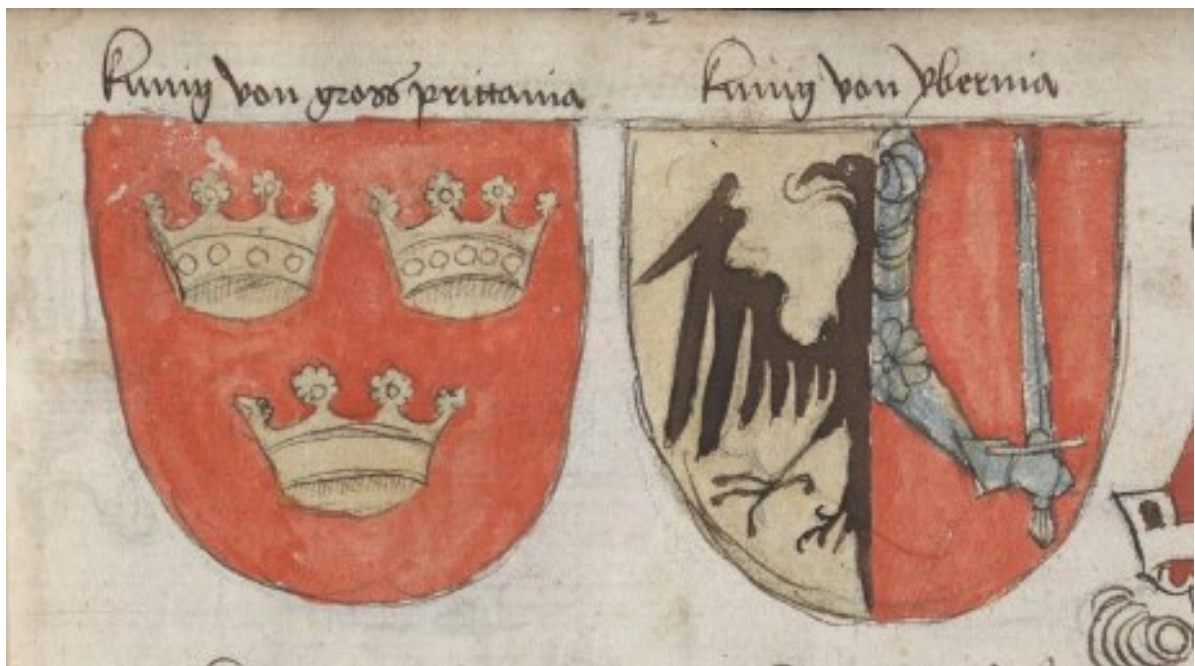 kunig von gross prittania
kunig von ybernia